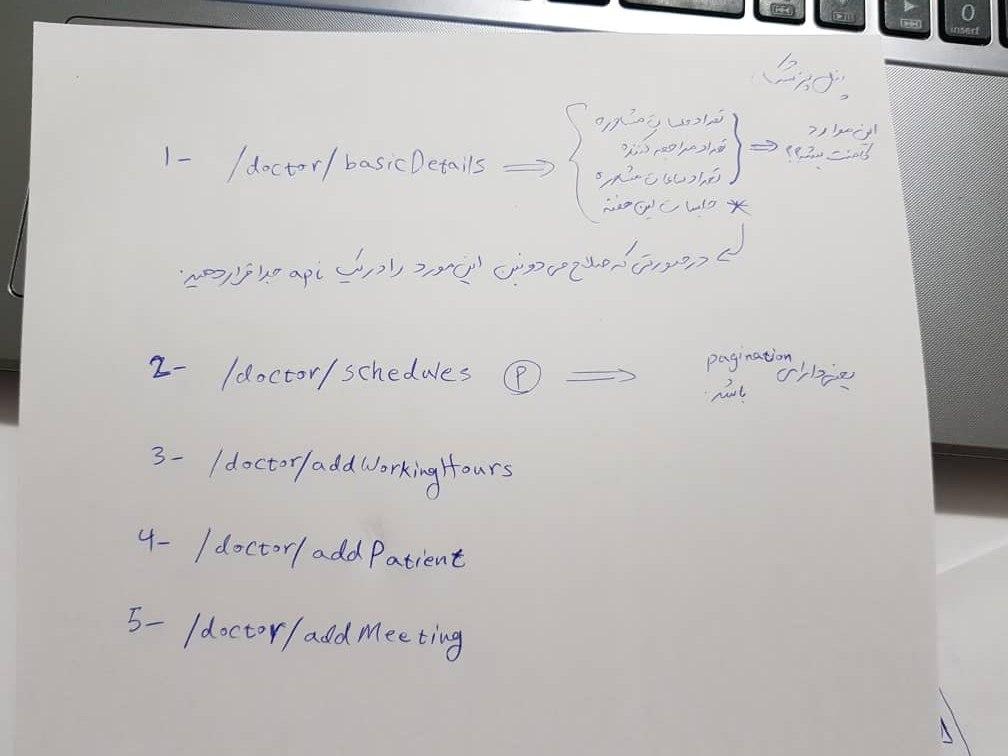 پنل پزشک
1- /doctor/basicDetails ⇒
تعداد جلسات مشاوره
تعداد مراجعه کننده
تعداد ساعات مشاوره
* جلسات این هفته
⇒ این موارد
کامنت بشه؟؟
در صورتی که صلاح می دونین این مورد را در یک api جدا قرار دهید.
2- /doctor/schedules Ⓟ ⇒ یعنی دارای pagination
باشد.
3- /doctor/addWorkingHours
4- /doctor/addPatient
5- /doctor/addMeeting
0
insert